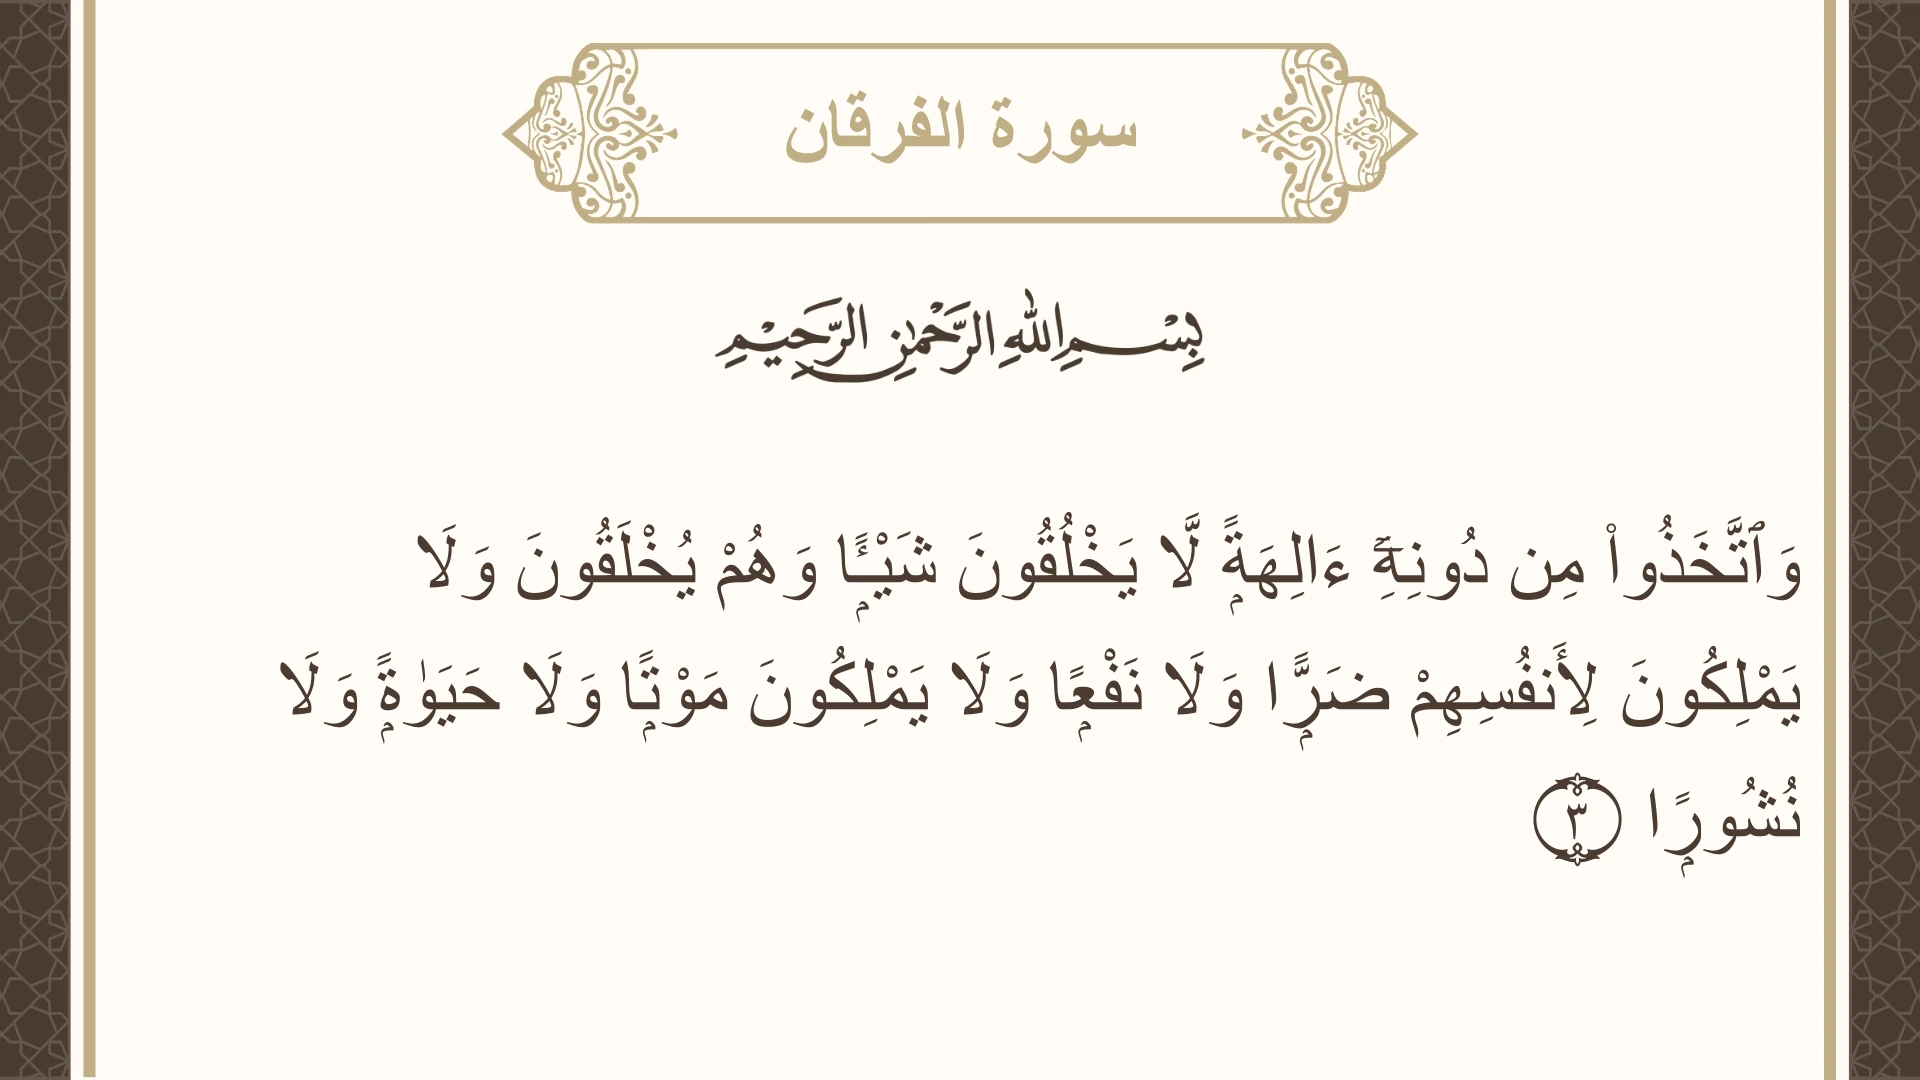 سورة الفرقان
بِسْمِ اللهِ الرَّحْمٰنِ الرَّحِيْمِ
وَٱتَّخَذُوا۟ مِن دُونِهِۦٓ ءَالِهَةًۭ لَّا يَخْلُقُونَ شَيْـًۭٔا وَهُمْ يُخْلَقُونَ وَلَا
يَمْلِكُونَ لِأَنفُسِهِمْ ضَرًّۭا وَلَا نَفْعًۭا وَلَا يَمْلِكُونَ مَوْتًۭا وَلَا حَيَوٰةًۭ وَلَا
نُشُورًۭا ٣